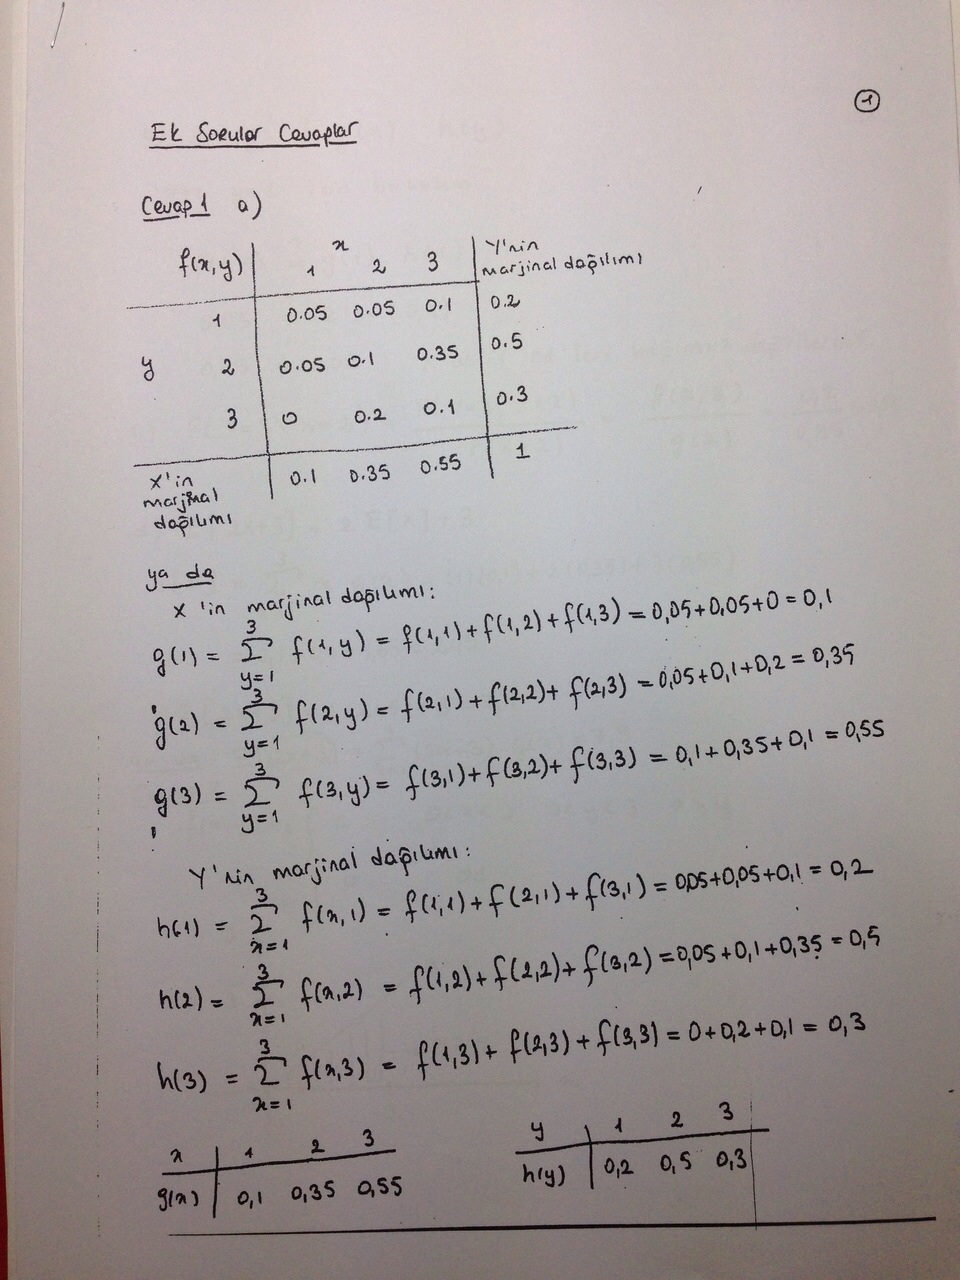 1
Ek Sorular Cevaplar
Cevap 1 a)
f(x,y) x 1 2 3 Y'nin marjinal dağılımı
1 0.05 0.05 0.1 0.2
y 2 0.05 0.1 0.35 0.5
3 0 0.2 0.1 0.3
X'in marjinal dağılımı 0.1 0.35 0.55 1
ya da
X'in marjinal dağılımı:
g(1) = ∑_{y=1}^{3} f(1,y) = f(1,1)+f(1,2)+f(1,3) = 0,05+0,05+0 = 0,1
g(2) = ∑_{y=1}^{3} f(2,y) = f(2,1)+f(2,2)+f(2,3) = 0,05+0,1+0,2 = 0,35
g(3) = ∑_{y=1}^{3} f(3,y) = f(3,1)+f(3,2)+f(3,3) = 0,1+0,35+0,1 = 0,55
Y'nin marjinal dağılımı:
h(1) = ∑_{x=1}^{3} f(x,1) = f(1,1)+f(2,1)+f(3,1) = 0,05+0,05+0,1 = 0,2
h(2) = ∑_{x=1}^{3} f(x,2) = f(1,2)+f(2,2)+f(3,2) = 0,05+0,1+0,35 = 0,5
h(3) = ∑_{x=1}^{3} f(x,3) = f(1,3)+f(2,3)+f(3,3) = 0+0,2+0,1 = 0,3
x 1 2 3
g(x) 0,1 0,35 0,55
y 1 2 3
h(y) 0,2 0,5 0,3